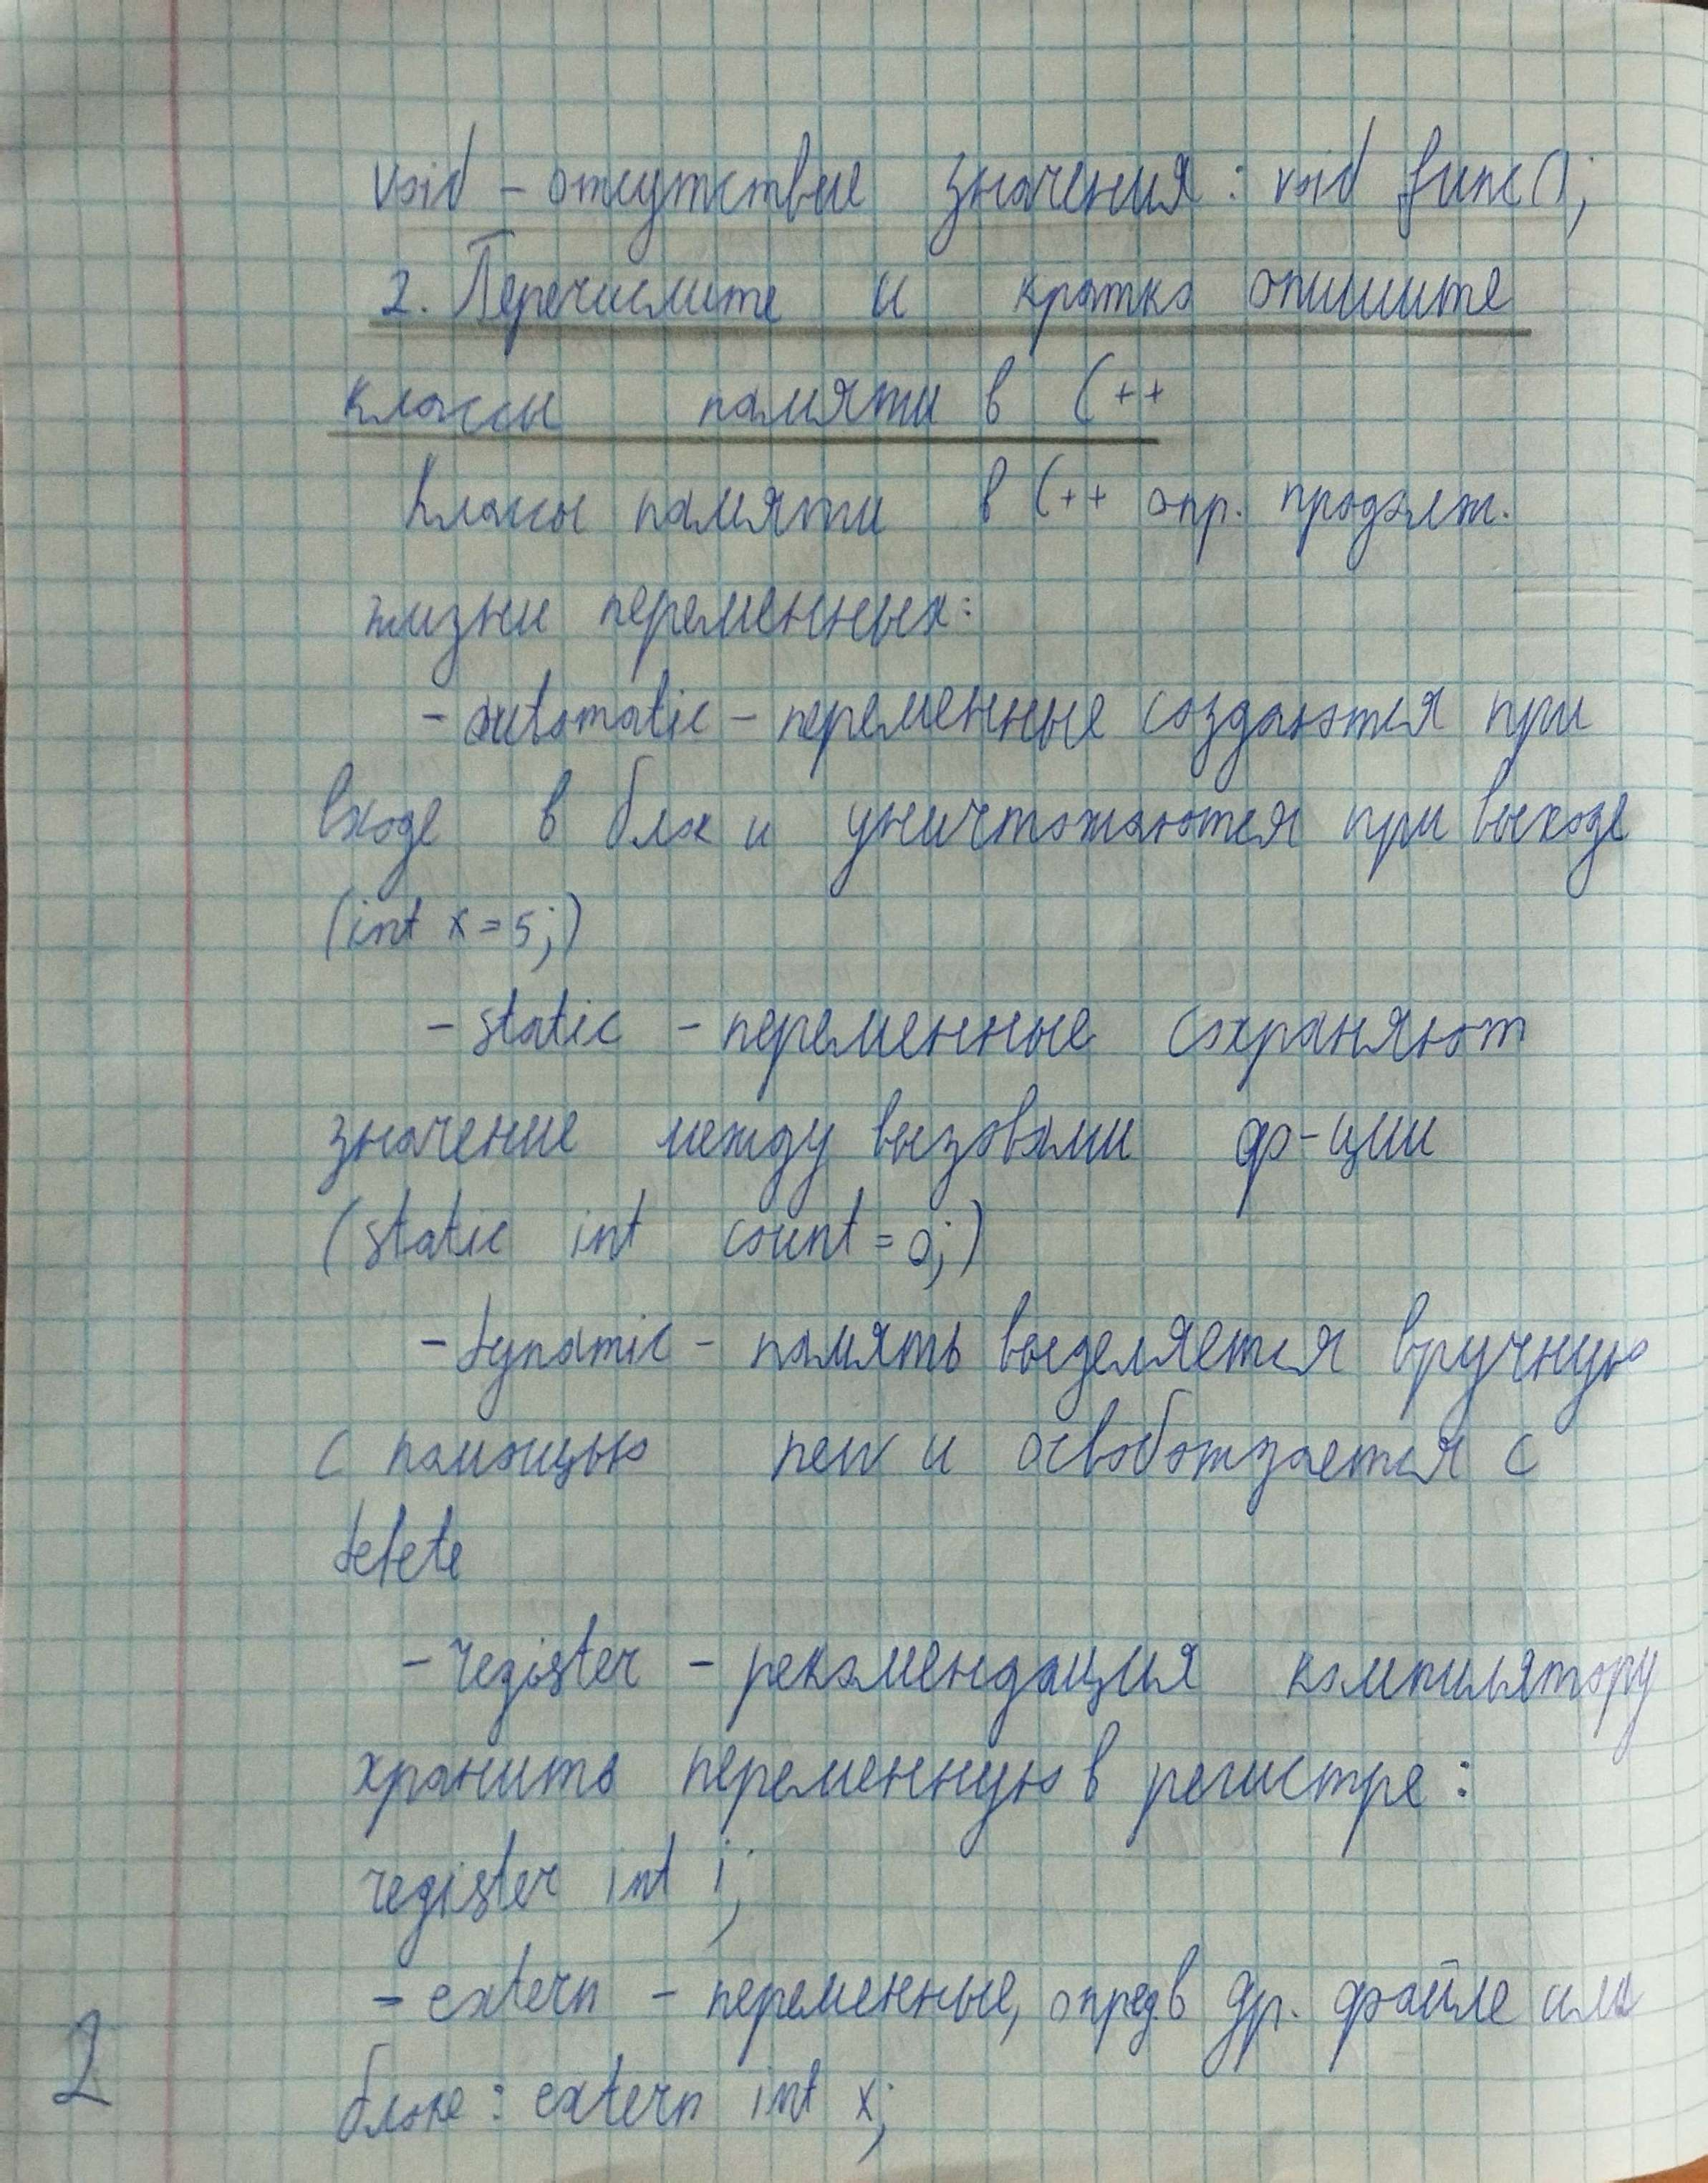 void - отсутствие значения: void func();
2. Перечислите и кратко опишите
классы памяти в C++
Классы памяти в C++ опр. продолж.
жизни переменных:
- automatic - переменные создаются при
входе в блок и уничтожаются при выходе
(int x = 5;)
- static - переменные сохраняют
значение между вызовами ф-ции
(static int count = 0;)
- dynamic - память выделяется вручную
с помощью new и освобождается с
delete
- register - рекомендация компилятору
хранить переменную в регистре:
register int i;
- extern - переменные, опред в др. файле или
блоке: extern int x;
2